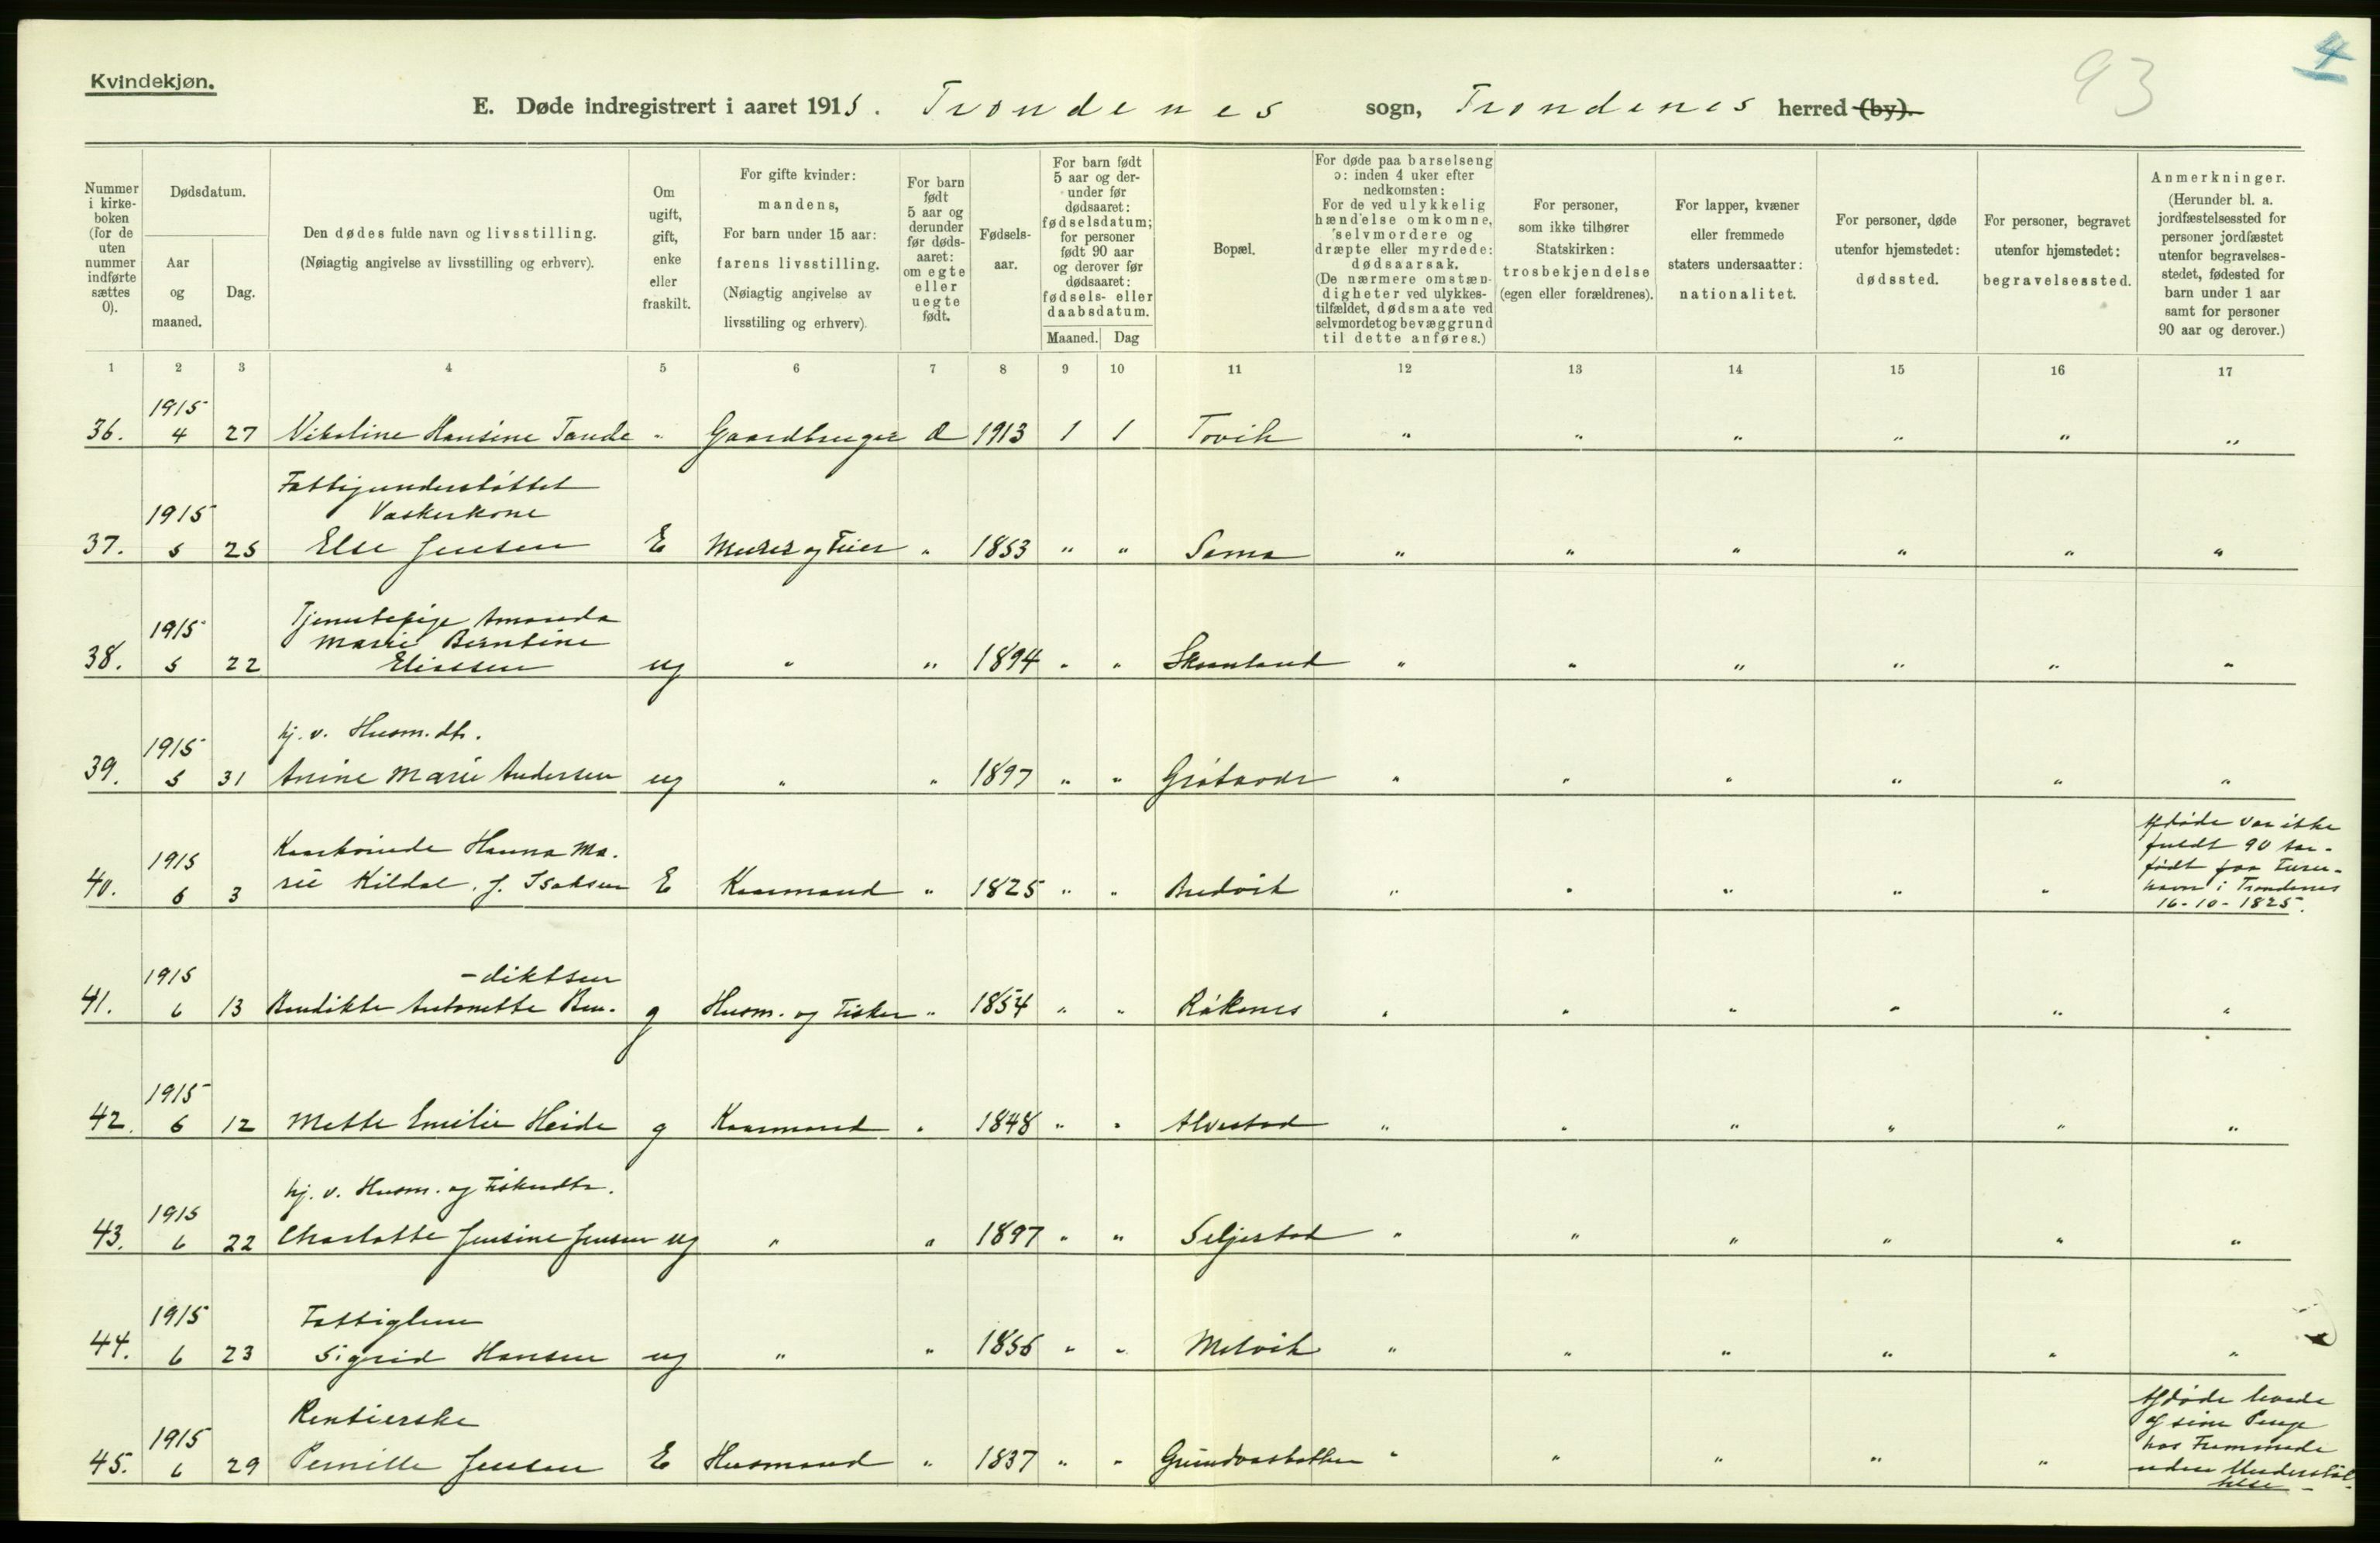 Kvindekjøn.
93
4
E. Døde indregistrert i aaret 1915. Trondenes sogn, Trondenes herred (by).
Nummer i kirke-boken (for de uten nummer indførte sættes 0).
Dødsdatum.
Aar og maaned.
Dag.
Den dødes fulde navn og livsstilling.
(Nøiagtig angivelse av livsstilling og erhverv).
Om ugift, gift, enke eller fraskilt.
For gifte kvinder: mandens,
For barn under 15 aar: farens livsstilling.
(Nøiagtig angivelse av livsstiling og erhverv).
For barn født 5 aar og derunder før døds-aaret: om egte eller uegte født.
Fødsels-aar.
For barn født 5 aar og der-under før dødsaaret: fødselsdatum; for personer født 90 aar og derover før dødsaaret: fødsels- eller daabsdatum.
Maaned.
Dag
Bopæl.
For døde paa barselseng ɔ: inden 4 uker efter nedkomsten:
For de ved ulykkelig hændelse omkomne, selvmordere og dræpte eller myrdede: dødsaarsak.
(De nærmere omstæn-digheter ved ulykkes-tilfældet, dødsmaate ved selvmordet og bevæggrund til dette anføres.)
For personer, som ikke tilhører Statskirken: trosbekjendelse (egen eller forældrenes).
For lapper, kvæner eller fremmede staters undersaatter: nationalitet.
For personer, døde utenfor hjemstedet: dødssted.
For personer, begravet utenfor hjemstedet: begravelsessted.
Anmerkninger.
(Herunder bl. a. jordfæstelsessted for personer jordfæstet utenfor begravelses-stedet, fødested for barn under 1 aar samt for personer 90 aar og derover.)
1 2 3 4 5 6 7 8 9 10 11 12 13 14 15 16 17
1915
36. 4 27 Nikoline Hansine Tande " Gaardbruger 1913 1 1 Tovik " " " " " "
Fattigunderstøttet
1915 Vaskerkone
37. 5 25 Else Jensen E Murer og Feier " 1853 " " Sama " " " " " "
Tjenestepige Amanda
1915 Marie Berntine
38. 5 22 Eliassen ug " " 1894 " " Skaanland " " " " " "
hj. v. Husm. dtr.
1915
39. 5 31 Anine Marie Andersen ug " " 1897 " " Grøtavær " " " " " "
1915 Kaarkvinde Hanna Ma-
40. 6 3 rie Kildal, f. Isaksen E Kaarmand " 1825 " " Bredvik " " " " "
Afdøde var ikke
fuldt 90 aar.
født paa
havn i Trondenes
16-10-1825.
1915 -diktsen
41. 6 13 Bendikte Antonette Ben- g Husm. og Fisker " 1854 " " Røkenes " " " " " "
1915
42. 6 12 Mette Emilie Heide g Kaarmand " 1848 " " Alvestad " " " " " "
hj. v. Husm. og Fiskerdtr.
1915
43. 6 22 Charlotte Jensine Jensen ug " " 1897 " " Seljestad " " " " " "
1915 Fattiglem
44. 6 23 Sigrid Hansen ug " " 1856 " " Melvik " " " " " "
Rentierske
1915
45. 6 29 Pernille Jensen E Husmand " 1837 " " Grundvasbotten " " " " "
Afdøde levede
af sine Penge
hos Fremmede
uden Understøt-
telse -